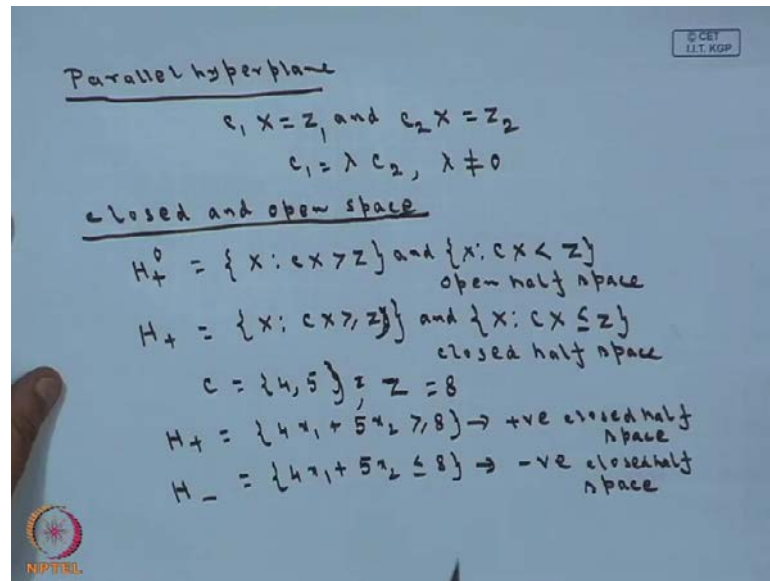 © CET
I.I.T. KGP
Parallel hyperplane
c₁ x = z₁ and c₂ x = z₂
c₁ = λ c₂, λ ≠ 0
closed and open space
H₊⁰ = { x : cx > z} and {x : cx < z}
open half space
H₊ = {x : cx ≥ z)} and {x : cx ≤ z}
closed half space
c = {4, 5} ; z = 8
H₊ = {4x₁ + 5x₂ ≥ 8} → +ve closed half
space
H₋ = {4x₁ + 5x₂ ≤ 8} → -ve closed half
space
NPTEL